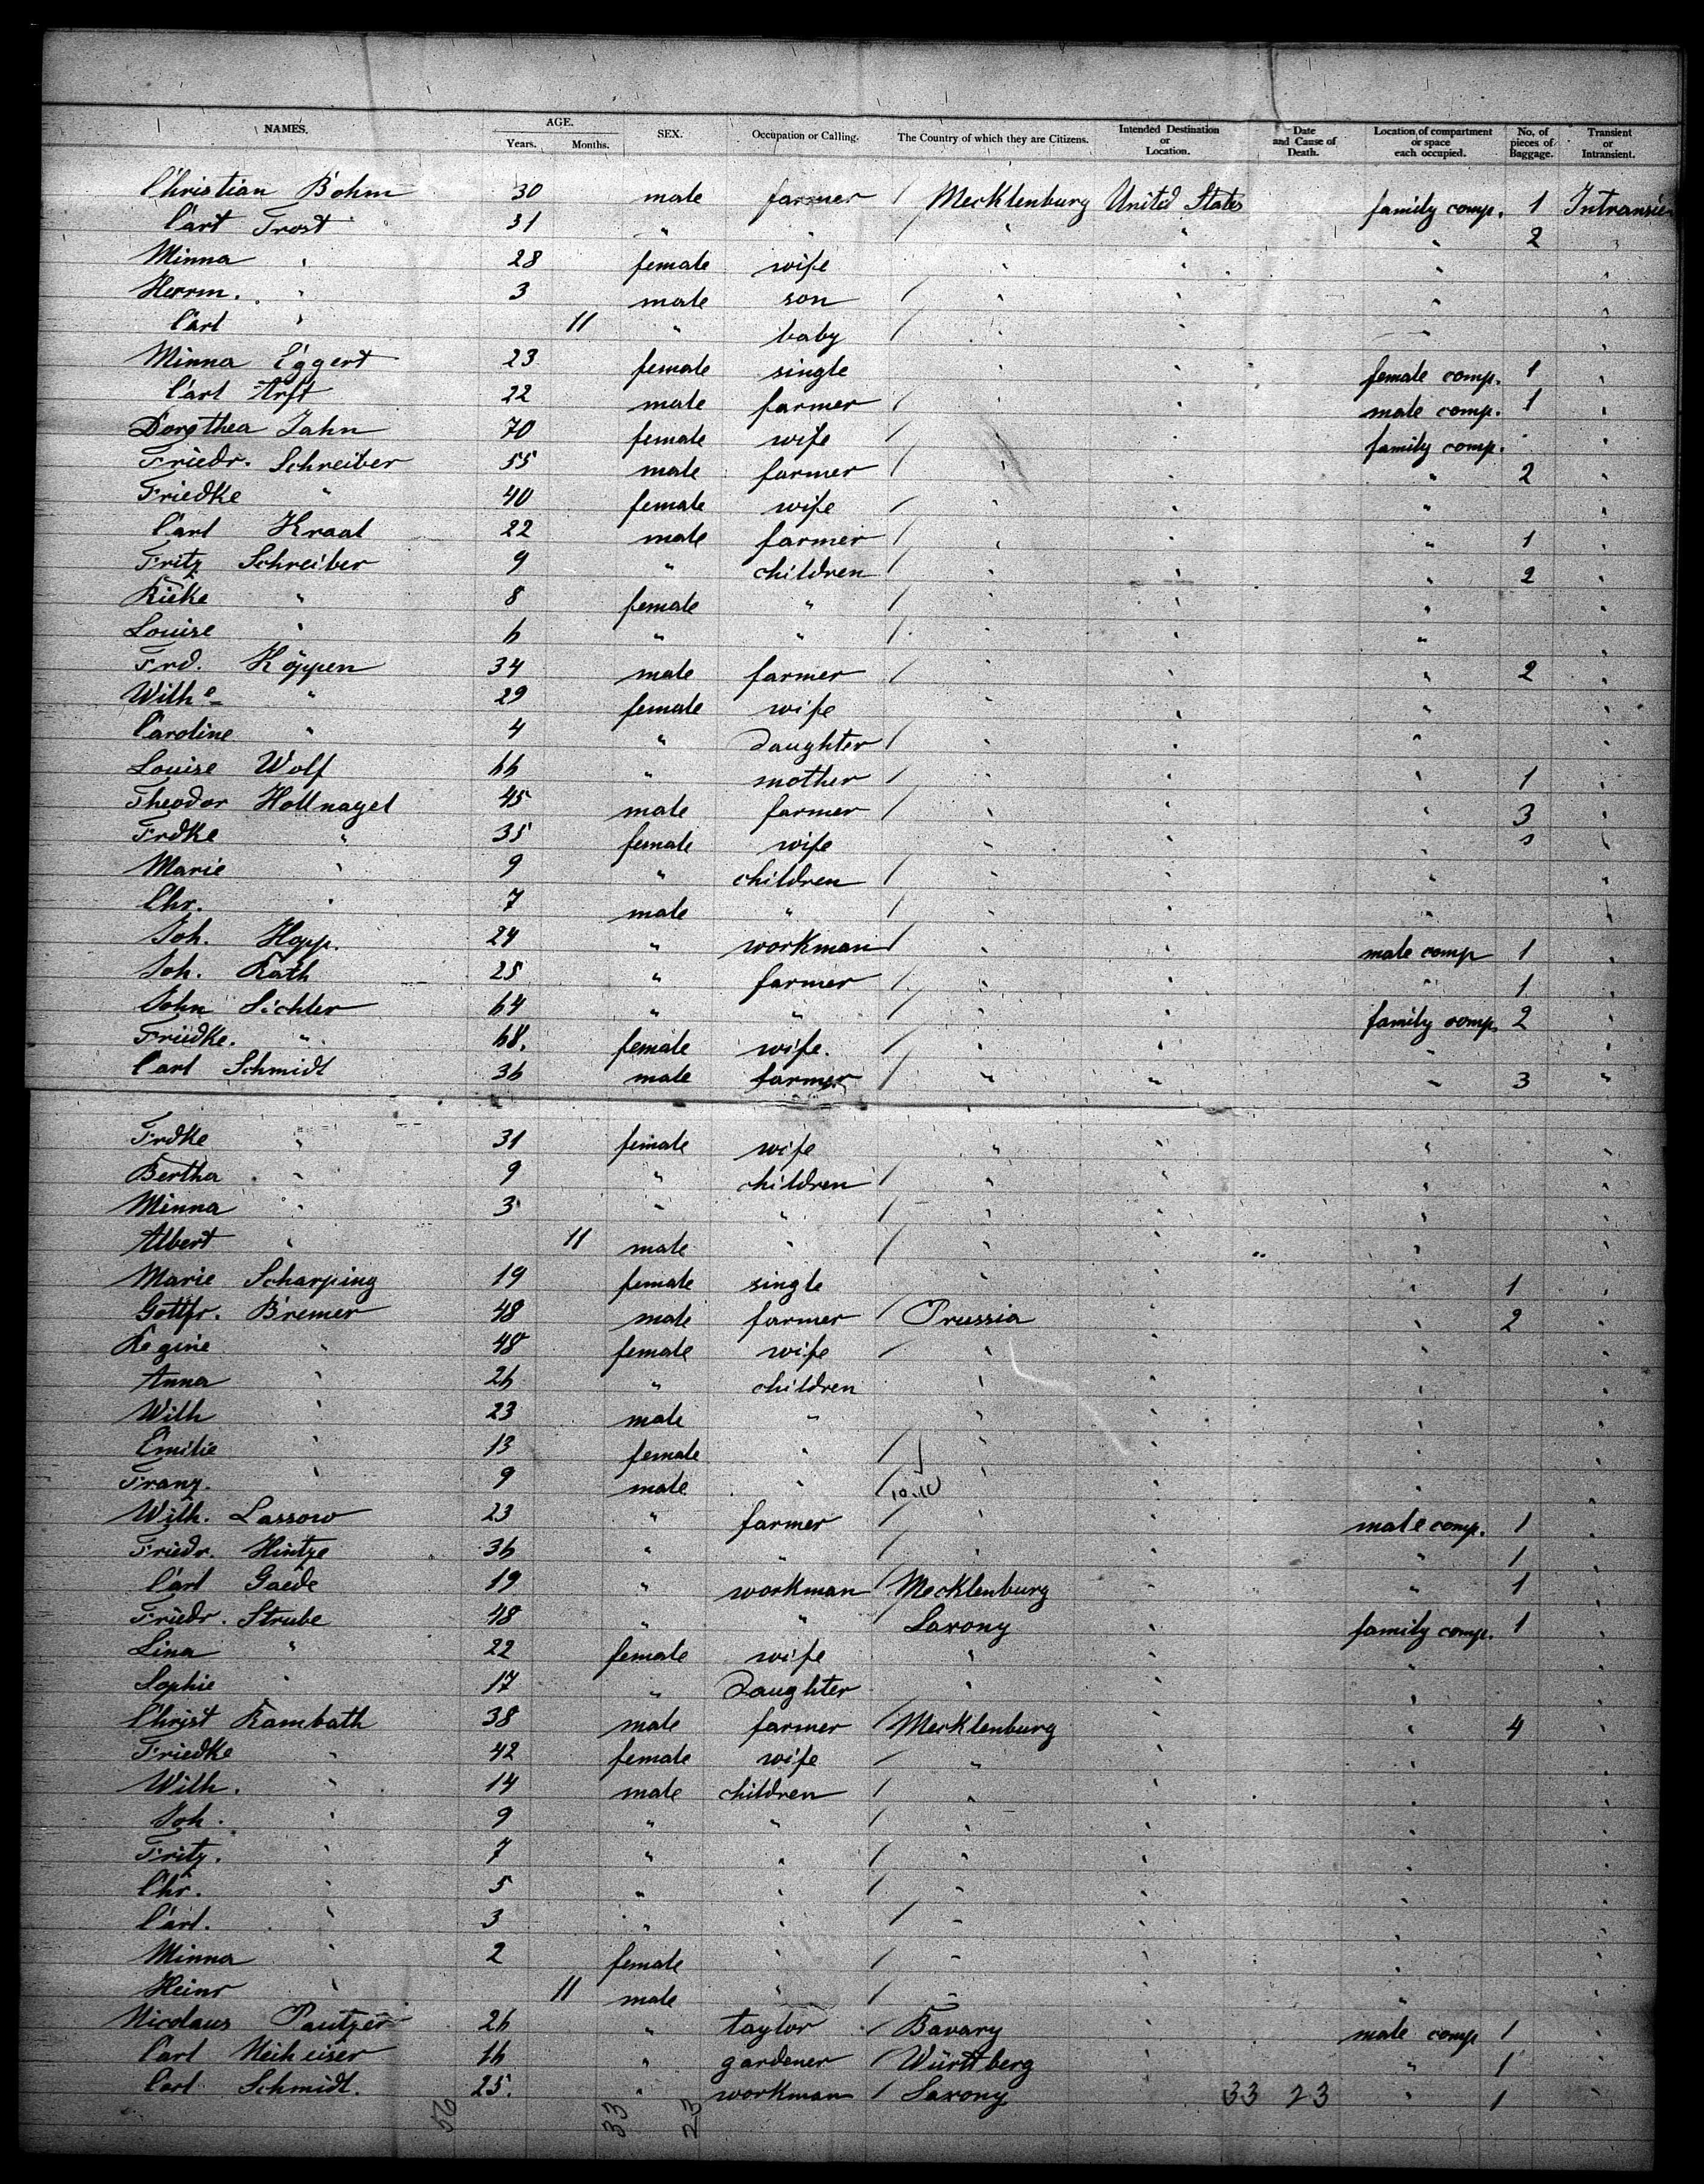 NAMES. AGE. Years. Months. SEX. Occupation or Calling. The Country of which they are Citizens. Intended Destination or Location. Date and Cause of Death. Location of compartment or space each occupied. No. of pieces of Baggage. Transient or Intransient.
Christian Böhm 30 male farmer / Mecklenburg United States family comp. 1 Intransie
Carl Trost 31 " " / " " " 2 "
Minna " 28 female wife " " " "
Herrm. " 3 male son / " " " "
Carl " 11 " baby / " " " "
Minna Eggert 23 female single " " female comp. 1 "
Carl Arft 22 male farmer / " " male comp. 1 "
Dorothea Jahn 70 female wife / " " family comp. "
Friedr. Schreiber 55 male farmer / " " " 2 "
Friedke " 40 female wife / " " " "
Carl Kraal 22 male farmer / " " " 1 "
Fritz Schreiber 9 " children / " " " 2 "
Rieke " 8 female " / " " " "
Louise " 6 " " / " " " "
Frd. Köppen 34 male farmer / " " " 2 "
Wilhe " 29 female wife " " " "
Caroline " 4 " Daughter / " " " "
Louise Wolf 66 " mother / " " " 1 "
Theodor Hollnagel 45 male farmer / " " " 3 "
Frdke " 35 female wife " " " "
Marie " 9 " children / " " " "
Chr. " 7 male " / " " " "
Joh. Hopp. 24 " workman / " " male comp 1 "
Joh. Rath 25 " farmer / " " " 1 "
John Sichler 64 " " / " " family comp. 2 "
Friedke. " 68. female wife. / " " " "
Carl Schmidt 36 male farmer / " " " 3 "
Frdke " 31 female wife " " " "
Bertha " 9 " children / " " " "
Minna " 3 " " / " " " "
Albert " 11 male " / " " " "
Marie Scharping 19 female single " " " 1 "
Gottfr. Bremer 48 male farmer / Prussia " " 2 "
Regine " 48 female wife / " " " "
Anna " 26 " children " " " "
Wilh " 23 male " " " " "
Emilie " 13 female " / " " " "
Franz. " 9 male " / " " " "
Wilh. Lassow 23 " farmer / " " male comp. 1 "
Friedr. Hintze 36 " " / " " " 1 "
Carl Gaede 19 " workman / Mecklenburg " " 1 "
Friedr. Strube 48 " " Saxony " family comp. 1 "
Lina " 22 female wife " " " "
Sophie " 17 " Daughter " " " "
Christ Rambath 38 male farmer / Mecklenburg " " 4 "
Friedke " 42 female wife / " " " "
Wilh. " 14 male children / " " " "
Joh. " 9 " " / " " " "
Fritz. " 7 " " / " " " "
Chr. " 5 " " / " " " "
Carl. " 3 " " / " " " "
Minna " 2 female " / " " " "
Heinr " 11 male " / " " " "
Nicolaus Pautzer 26 " taylor / Bavary " male comp 1 "
Carl Neiheiser 16 " gardener / Württberg " " 1 "
Carl Schmidt. 25. " workman / Saxony " 33 23 " 1 "
56 33 23